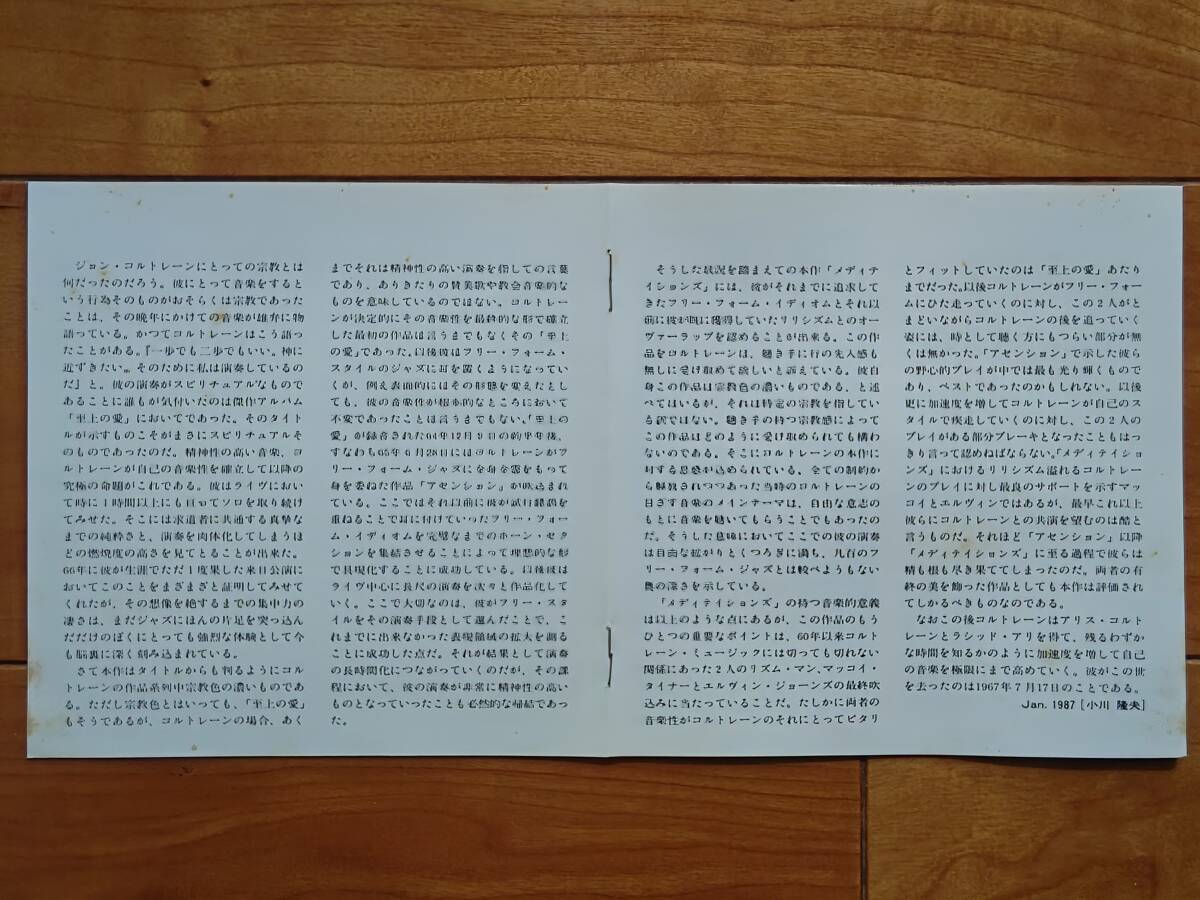 ジョン・コルトレーンにとっての宗教とは
何だったのだろう。彼にとって音楽をすると
いう行為そのものがおそらくは宗教であった
ことは、その晩年にかけての音楽が雄弁に物
語っている。かつてコルトレーンはこう語っ
たことがある。『一歩でも二歩でもいい。神に
近ずきたい。そのために私は演奏しているの
だ』と。彼の演奏がスピリチュアルなもので
あることに誰もが気付いたのは傑作アルバム
「至上の愛」においてであった。そのタイト
ルが示すものこそがまさにスピリチュアルそ
のものであったのだ。精神性の高い音楽、コ
ルトレーンが自己の音楽性を確立して以降の
究極の命題がこれである。彼はライヴにおい
て時に1時間以上にも亘ってソロを取り続け
てみせた。そこには求道者に共通する真摯な
までの純粋さと、演奏を肉体化してしまうほ
どの燃焼度の高さを見てとることが出来た。
66年に彼が生涯でただ1度果した来日公演に
おいてこのことをまざまざと証明してみせて
くれたが、その想像を絶するまでの集中力の
凄さは、まだジャズにほんの片足を突っ込ん
だだけのぼくにとっても強烈な体験として今
も脳裏に深く刻み込まれている。
さて本作はタイトルからも判るようにコル
トレーンの作品系列中宗教色の濃いものであ
る。ただし宗教色とはいっても、「至上の愛」
もそうであるが、コルトレーンの場合、あく
までそれは精神性の高い演奏を指しての言葉
であり、ありきたりの賛美歌や教会音楽的な
ものを意味しているのではない。コルトレー
ンが決定的にその音楽性を最終的な形で確立
した最初の作品は言うまでもなくその「至上
の愛」であった。以後彼はフリー・フォーム・
スタイルのジャズに身を置くようになってい
くが、例え表面的にはその形態を変えたとし
ても、彼の音楽性が根本的なところにおいて
不変であったことは言うまでもない。「至上の
愛」が録音された64年12月9日の約半年後、
すなわち65年6月28日にはコルトレーンがフ
リー・フォーム・ジャズに全身全霊をもって
身を委ねた作品「アセンション」が吹込まれて
いる。ここではそれ以前に彼が試行錯誤を
重ねることで身に付けていったフリー・フォー
ム・イディオムを完璧なまでのホーン・セク
ションを集結させることによって理想的な形
で具現化することに成功している。以後彼は
ライヴ中心に長尺の演奏を次々と作品化して
いく。ここで大切なのは、彼がフリー・スタ
イルをその演奏手段として選んだことで、こ
れまでに出来なかった表現領域の拡大を測る
ことに成功した点だ。それが結果として演奏
の長時間化につながっていくのだが、その課
程において、彼の演奏が非常に精神性の高い
ものとなっていったことも必然的な帰結であっ
た。
そうした状況を踏まえての本作「メディテ
イションズ」には、彼がそれまでに追求して
きたフリー・フォーム・イディオムとそれ以
前に彼が既に獲得していたリリシズムとのオー
ヴァーラップを認めることが出来る。この作
品をコルトレーンは、聴き手に何の先入感も
無しに受け取めて欲しいと訴えている。彼自
身この作品は宗教色の濃いものである、と述
べてはいるが、それは特定の宗教を指してい
る訳ではない。聴き手の持つ宗教感によって
この作品はどのように受け取められても構わ
ないのである。そこにコルトレーンの本作に
対する思惑が込められている。全ての制約か
ら解放されつつあった当時のコルトレーンの
目ざす音楽のメインテーマは、自由な意志の
もとに音楽を聴いてもらうことでもあったの
だ。そうした意味においてここでの彼の演奏
は自由な拡がりとくつろぎに満ち、凡百のフ
リー・フォーム・ジャズとは較べようもない
奥の深さを示している。
「メディテイションズ」の持つ音楽的意義
は以上のような点にあるが、この作品のもう
ひとつの重要なポイントは、60年以来コルト
レーン・ミュージックには切っても切れない
関係にあった2人のリズム・マン、マッコイ・
タイナーとエルヴィン・ジョーンズの最終吹
込みに当たっていることだ。たしかに両者の
音楽性がコルトレーンのそれにとってピタリ
とフィットしていたのは「至上の愛」あたり
までだった。以後コルトレーンがフリー・フォー
ムにひた走っていくのに対し、この2人がと
まどいながらコルトレーンの後を追っていく
姿には、時として聴く方にもつらい部分が無
くは無かった。「アセンション」で示した彼ら
の野心的プレイが中では最も光り輝くもので
あり、ベストであったのかもしれない。以後
更に加速度を増してコルトレーンが自己のス
タイルで疾走していくのに対し、この2人の
プレイがある部分ブレーキとなったこともはっ
きり言って認めねばならない。「メディテイショ
ンズ」におけるリリシズム溢れるコルトレー
ンのプレイに対し最良のサポートを示すマッ
コイとエルヴィンではあるが、最早これ以上
彼らにコルトレーンとの共演を望むのは酷と
言うものだ。それほど「アセンション」以降
「メディテイションズ」に至る過程で彼らは
精も根も尽き果ててしまったのだ。両者の有
終の美を飾った作品としても本作は評価され
てしかるべきものなのである。
なおこの後コルトレーンはアリス・コルト
レーンとラシッド・アリを得て、残るわずか
な時間を知るかのように加速度を増して自己
の音楽を極限にまで高めていく。彼がこの世
を去ったのは1967年7月17日のことである。
Jan. 1987 [小川 隆夫]